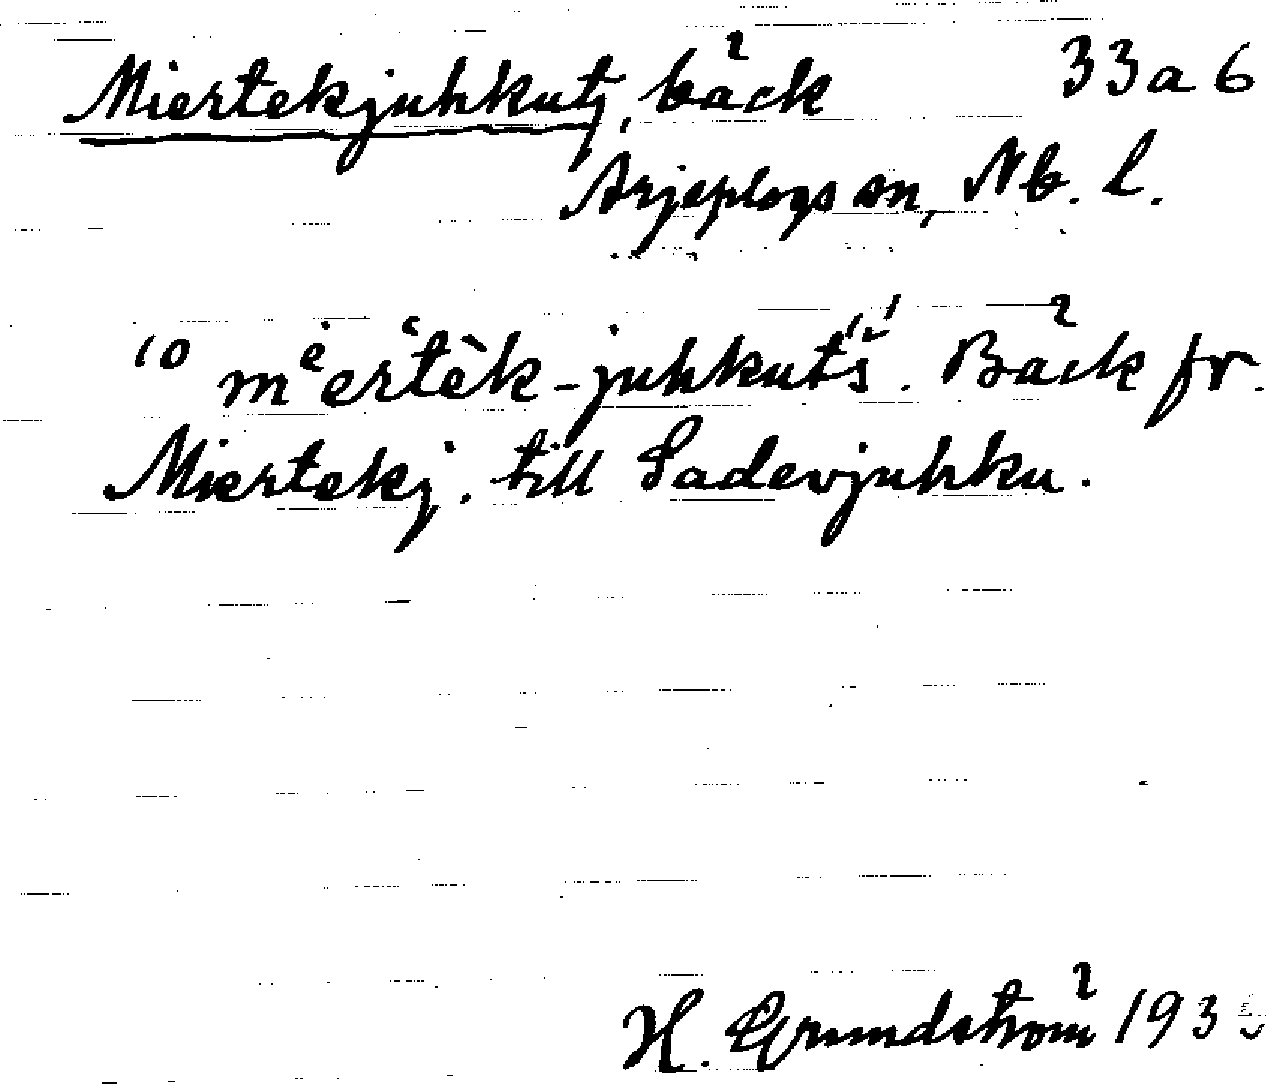 Miertekjuhkutj, bäck 33a6
Arjeplogs sn, Nb. l.
10 mᵉ̇ertēk-juhkut́ś. Bäck fr.
Miertekj. till Ladevjuhku.
H. Grundström